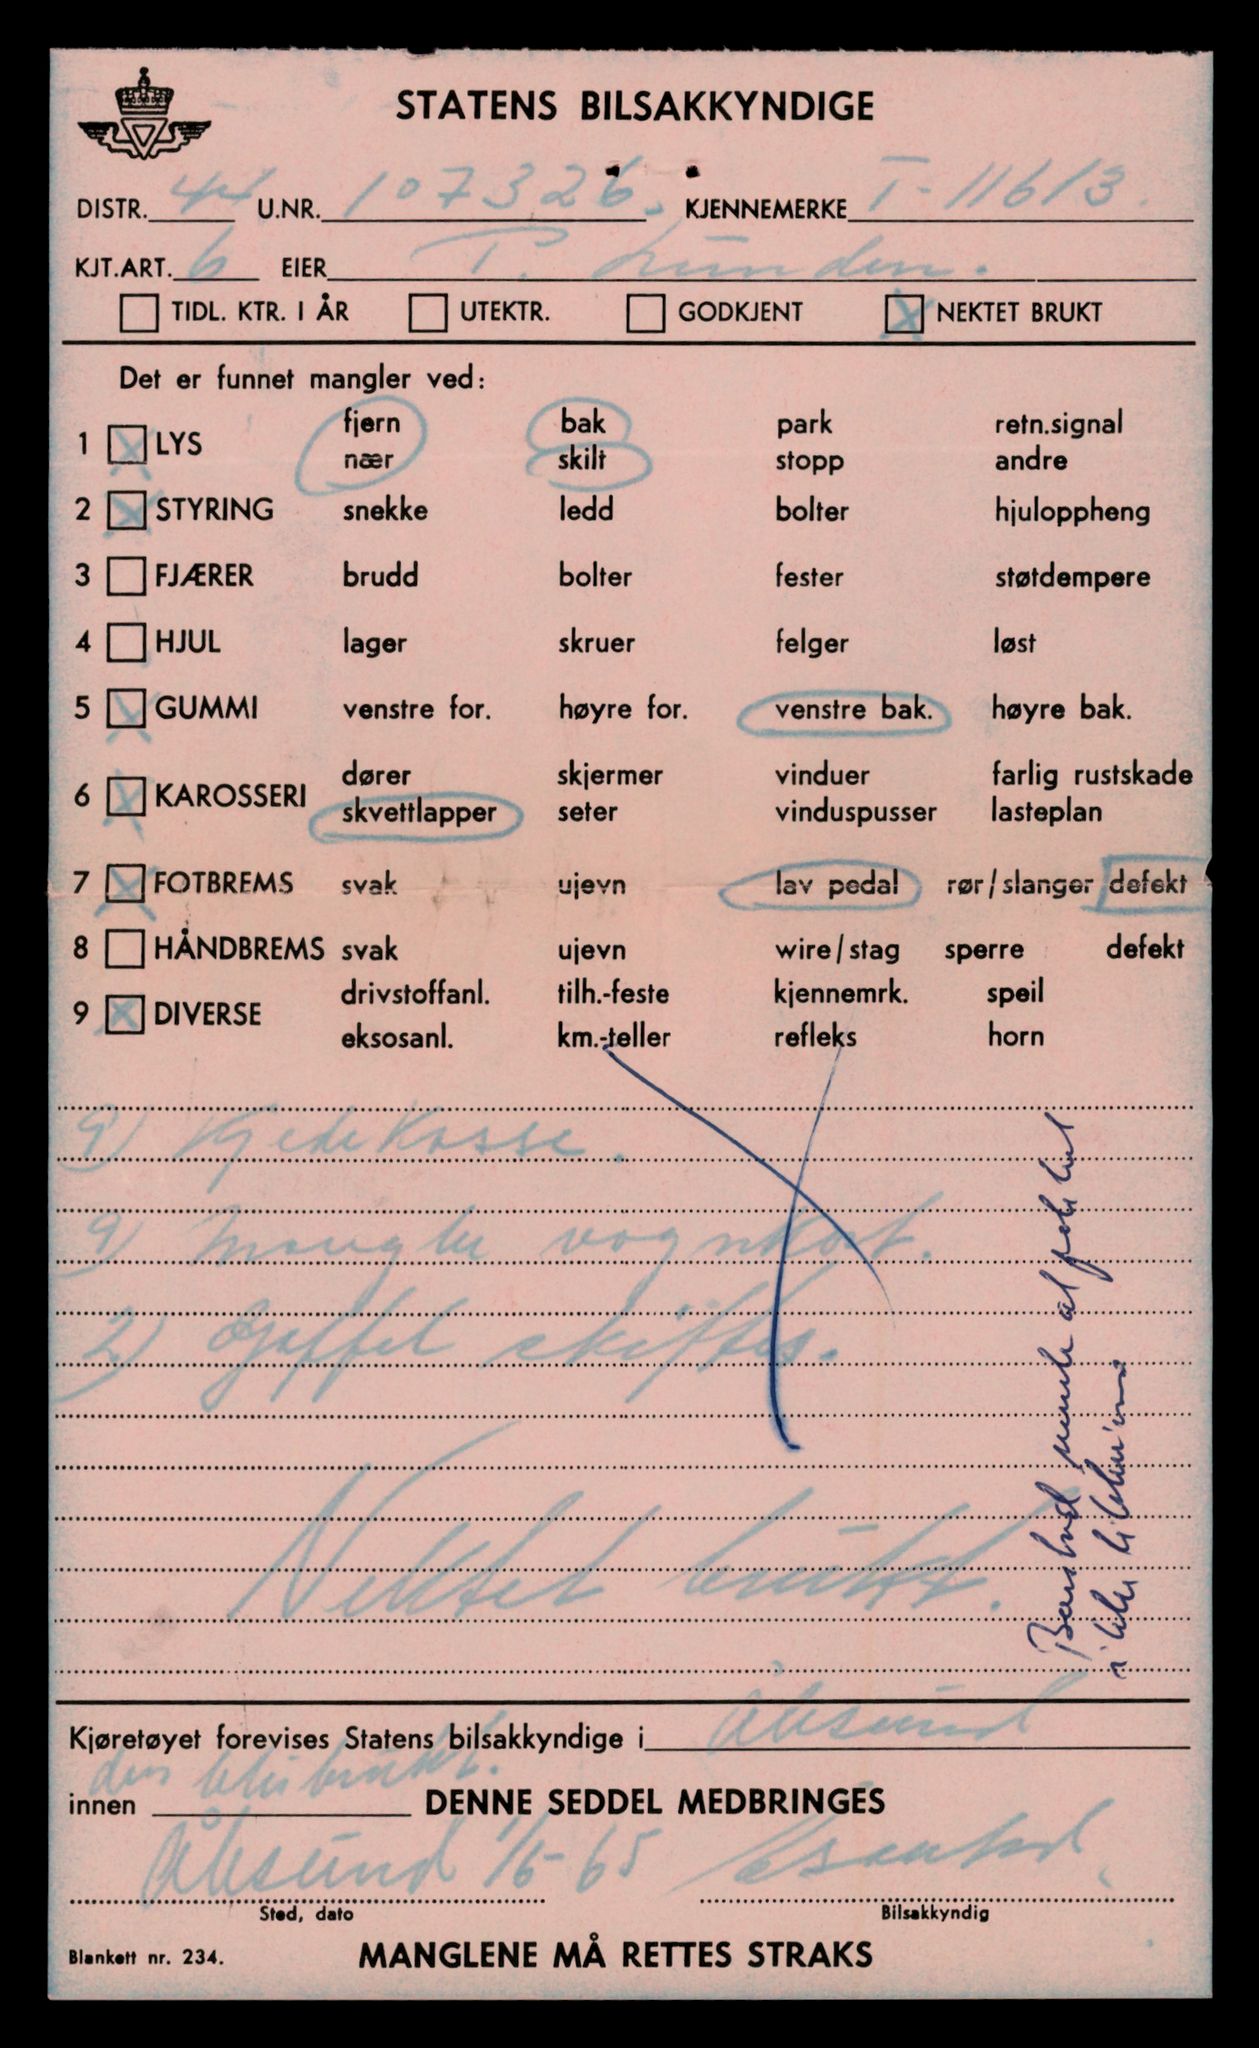 STATENS BILSAKKYNDIGE
DISTR. 44 U.NR. 107326. KJENNEMERKE T-11613.
KJT.ART. 6 EIER T. Lunden.
TIDL. KTR. I ÅR UTEKTR. GODKJENT X NEKTET BRUKT
Det er funnet mangler ved:
fjern bak park retn.signal
1 X LYS
nær skilt stopp andre
2 X STYRING snekke ledd bolter hjuloppheng
3 FJÆRER brudd bolter fester støtdempere
4 HJUL lager skruer felger løst
5 X GUMMI venstre for. høyre for. venstre bak. høyre bak.
dører skjermer vinduer farlig rustskade
6 X KAROSSERI
skvettlapper seter vinduspusser lasteplan
7 X FOTBREMS svak ujevn lav pedal rør/slanger defekt
8 HÅNDBREMS svak ujevn wire/stag sperre defekt
drivstoffanl. tilh.-feste kjennemrk. speil
9 X DIVERSE
eksosanl. km.-teller refleks horn
9) Kjedekasse.
9) Mangler vognkort.
2) Gaffel skiftes.
Nektet brukt.
Kjøretøyet forevises Statens bilsakkyndige i Ålesund
den blir brukt.
innen DENNE SEDDEL MEDBRINGES
Ålesund 1/6-65
Sted, dato Bilsakkyndig
Blankett nr. 234. MANGLENE MÅ RETTES STRAKS